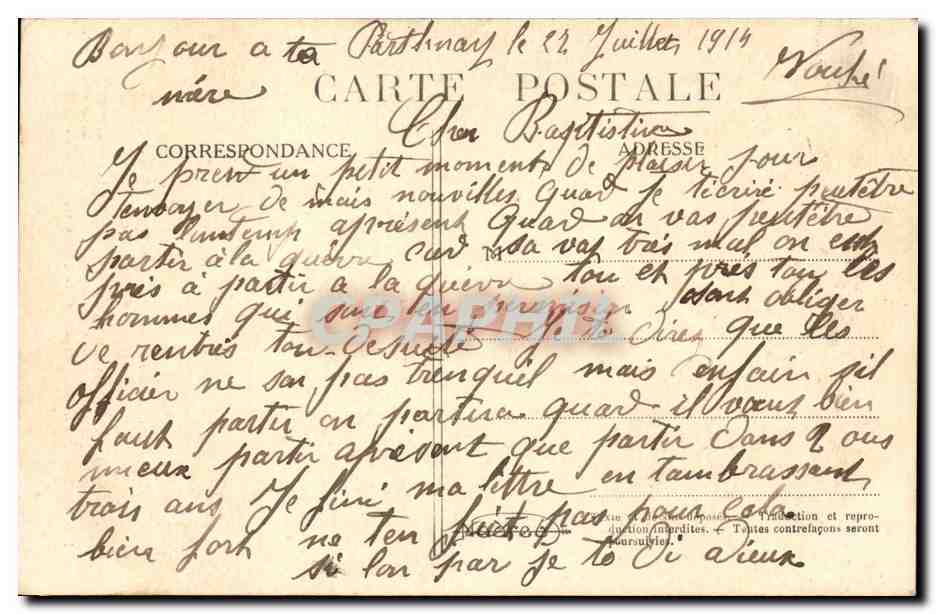 Bonjour a ta Parthnay le 22 Juillet 1914
mère
CARTE POSTALE
Cher Baptistine
CORRESPONDANCE
ADRESSE
Je prend un petit moment de plaisir pour
tenvoyer de mais nouvilles quad je técriré peutétre
pas lontemp apresent quad on vas peutétre
partir a la guérre card sa vas trés mal on est
M
prés à partir a la guérre tou et prés tou les
hommes qui sont en permision sont obliger
de rentrés tou desuite Je te direz que les
officier ne son pas trenquil mais enfain sil
faut partir on partira quad il vaut bien
mieux partir apresent que partir dans 2 ous
trois ans Je fini ma lettre en tambrassant
bien fort ne ten fait pas pour cela
si lon par je te di adieux
Traduction et repro-
duction interdites. Toutes contrefaçons seront
poursuivies.
CPAPHIL